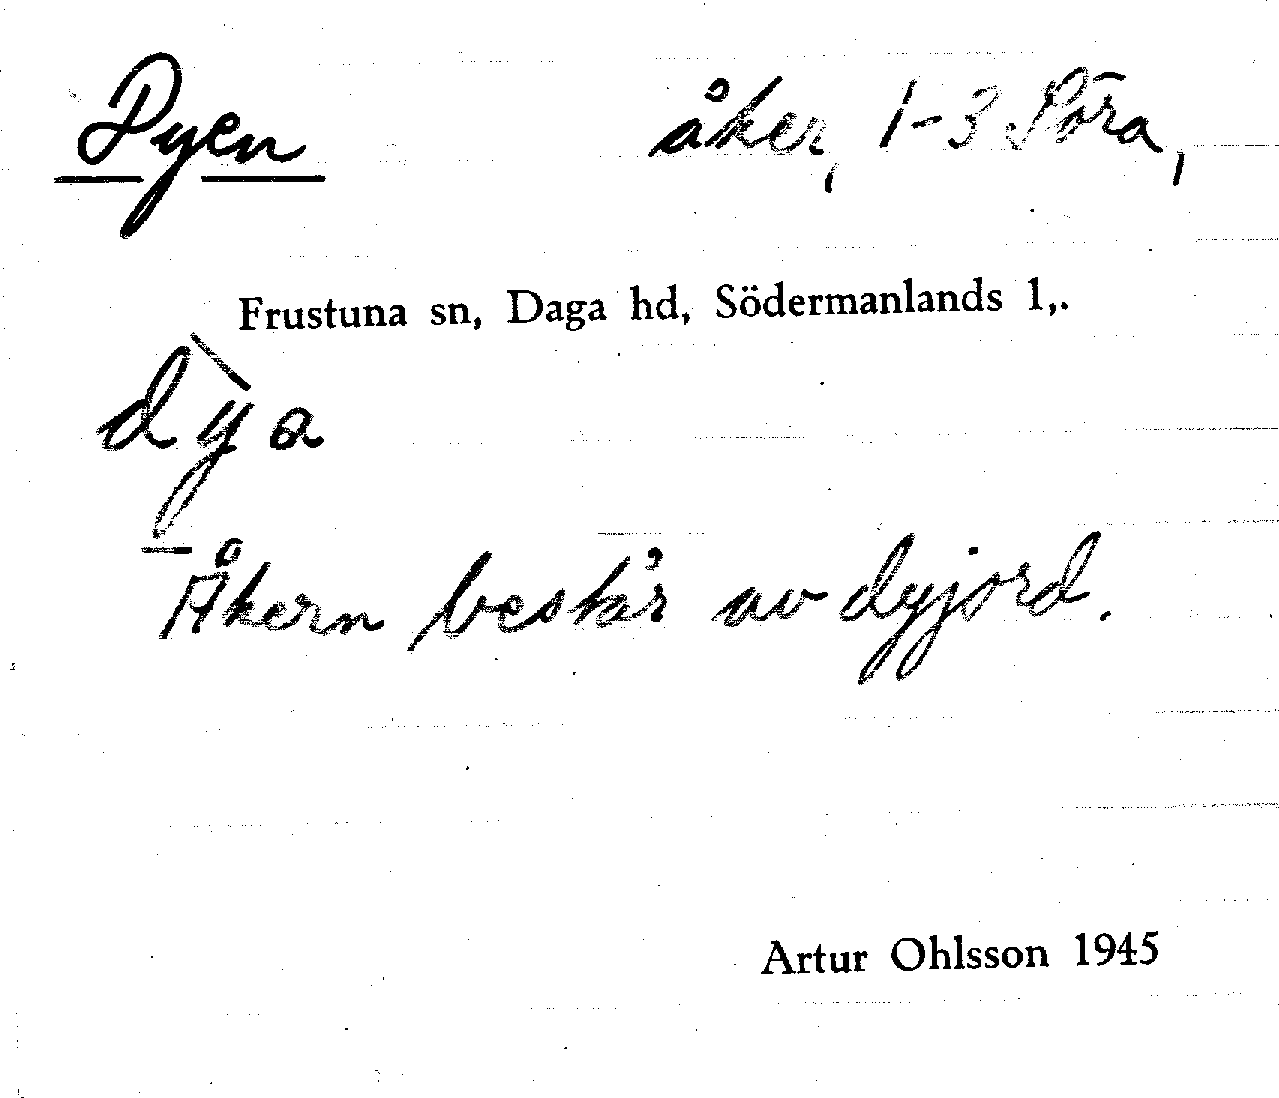 Dyen åker, 1-3 Söra,
Frustuna sn, Daga hd, Södermanlands l,.
dỳa
Åkern består av dyjord.
Artur Ohlsson 1945